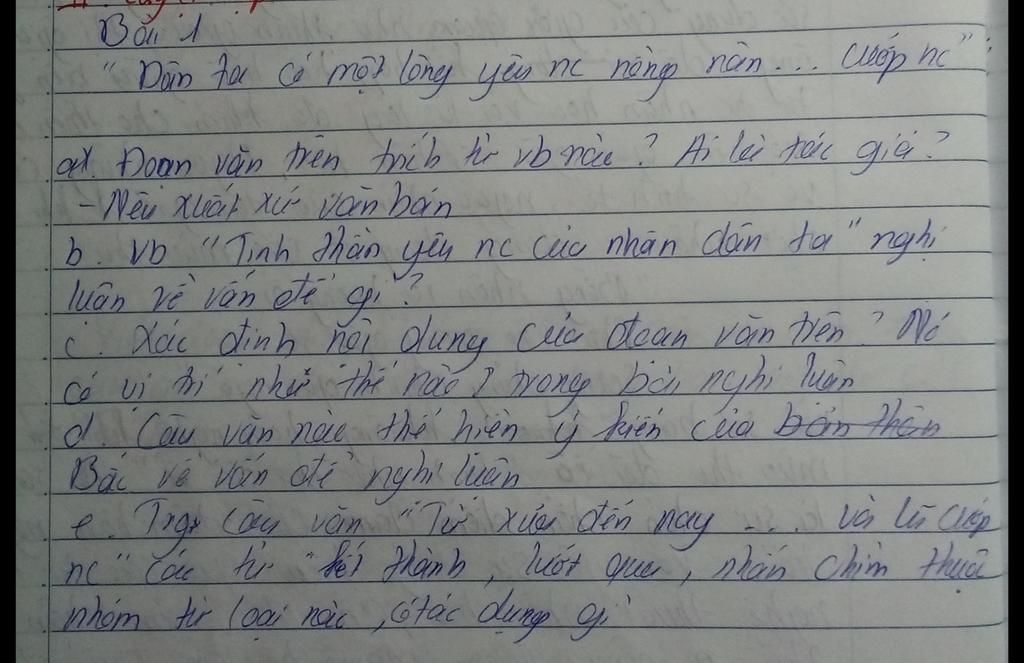 Bài 1
"Dân ta có một lòng yêu nc nồng nàn... cướp nc"
a. Đoạn văn trên trích từ vb nào? Ai là tác giả?
- Nêu xuất xứ văn bản
b. Vb "Tinh thần yêu nc của nhân dân ta" nghị
luận về vấn đề gì?
c. Xác định nội dung của đoạn văn trên? Nó
có vị trí như thế nào trong bài nghị luận
d. Câu văn nào thể hiện ý kiến của bản thân
Bác về vấn đề nghị luận
e. Trg câu văn "Từ xưa đến nay .... và lũ cướp
nc" các từ kết thành, lướt qua, nhấn chìm thuộc
nhóm từ loại nào, có tác dụng gì